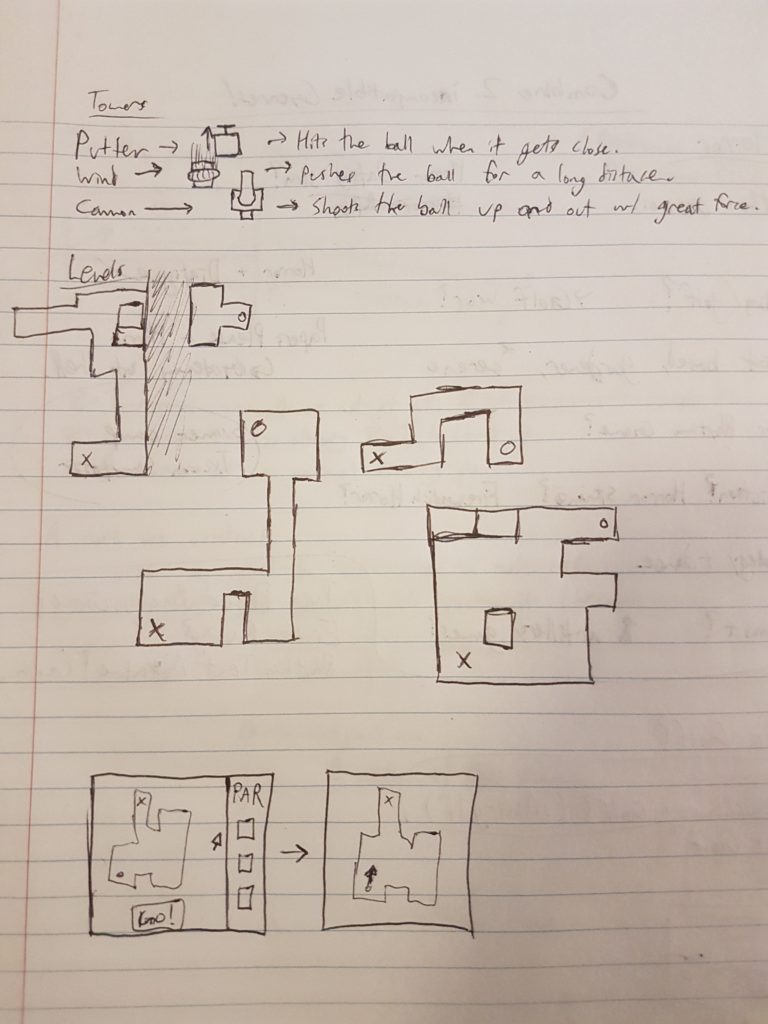 Towers
Putter → → Hits the ball when it gets close.
Wind → → Pushes the ball for a long distance.
Cannon → → Shoots the ball up and out w/ great force.
Levels
O
X
O
X
X
O
O
X
X
PAR
X
GO!